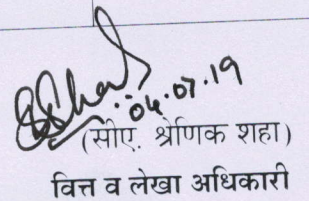 04.07.19
(सीए. श्रेणिक शहा)
वित्त व लेखा अधिकारी